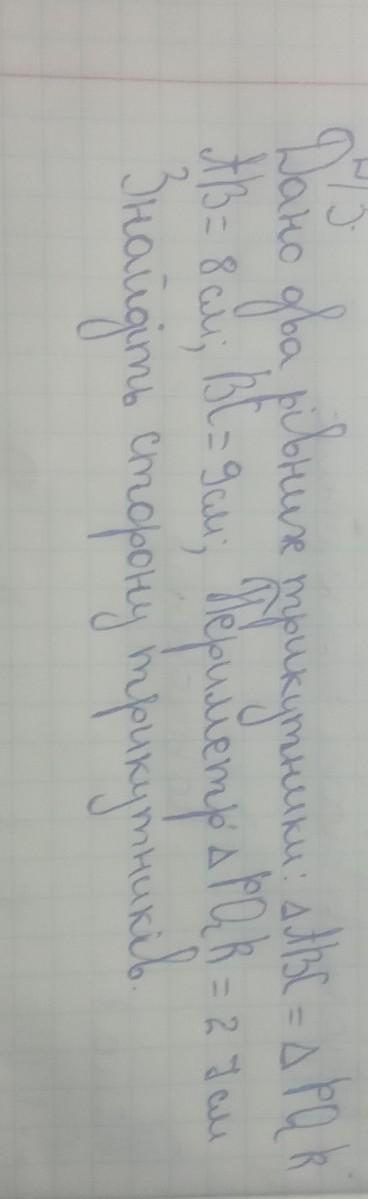 Д/з.
Дано два рівних трикутники: △ABC = △PQR
AB = 8 см; BC = 9 см; Периметр △PQR = 27 см
Знайдіть сторону трикутників.